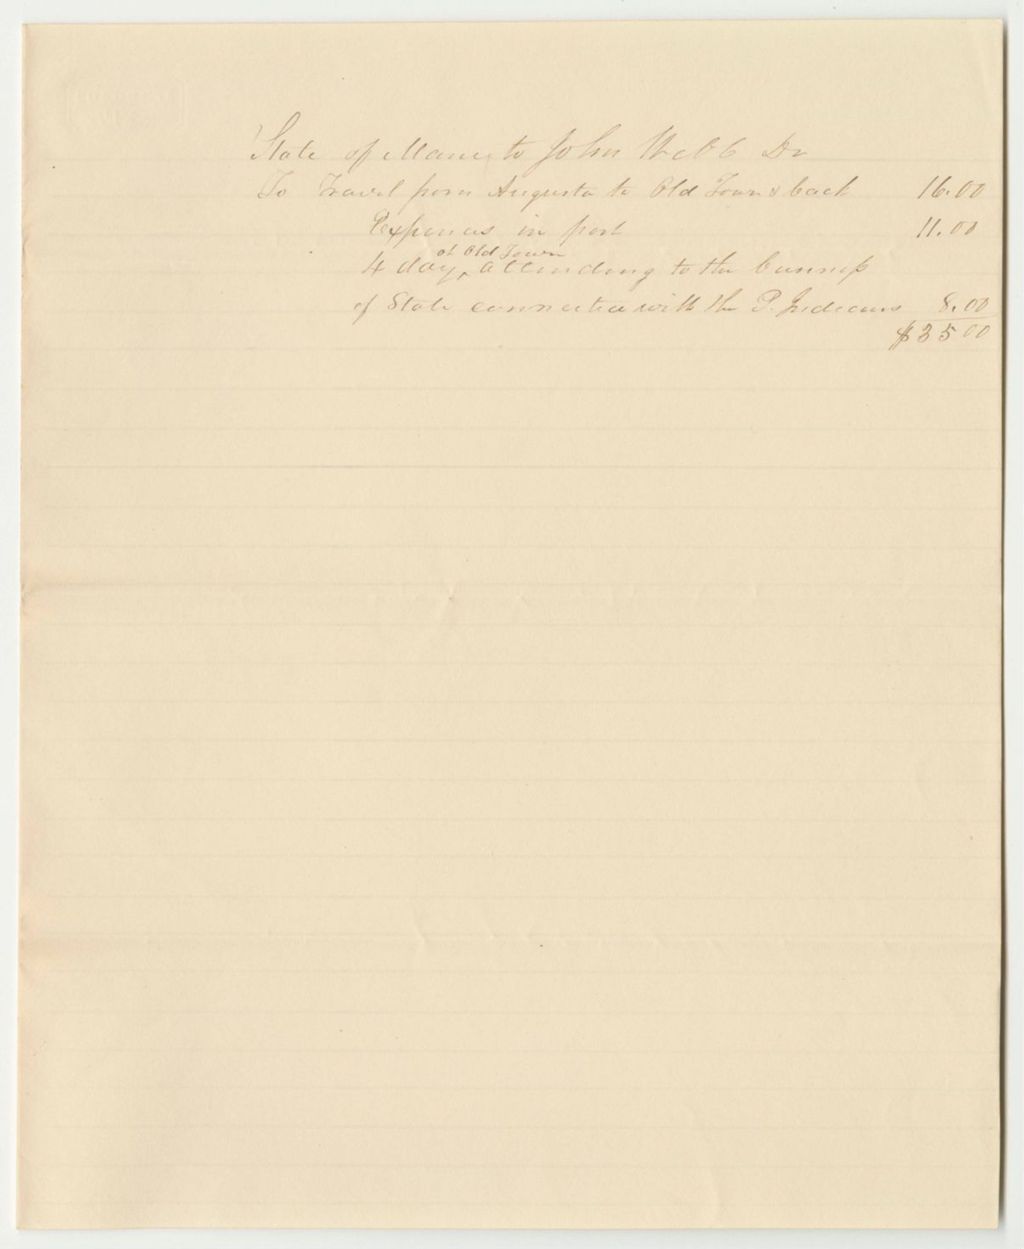 State of Maine to John Webb Dr
To Travel from Augusta to Old Town & back 16.00
Expences in part 11.00
4 days at Old Town attending to the business
of State connected with the P. Indians 8.00
$35 00